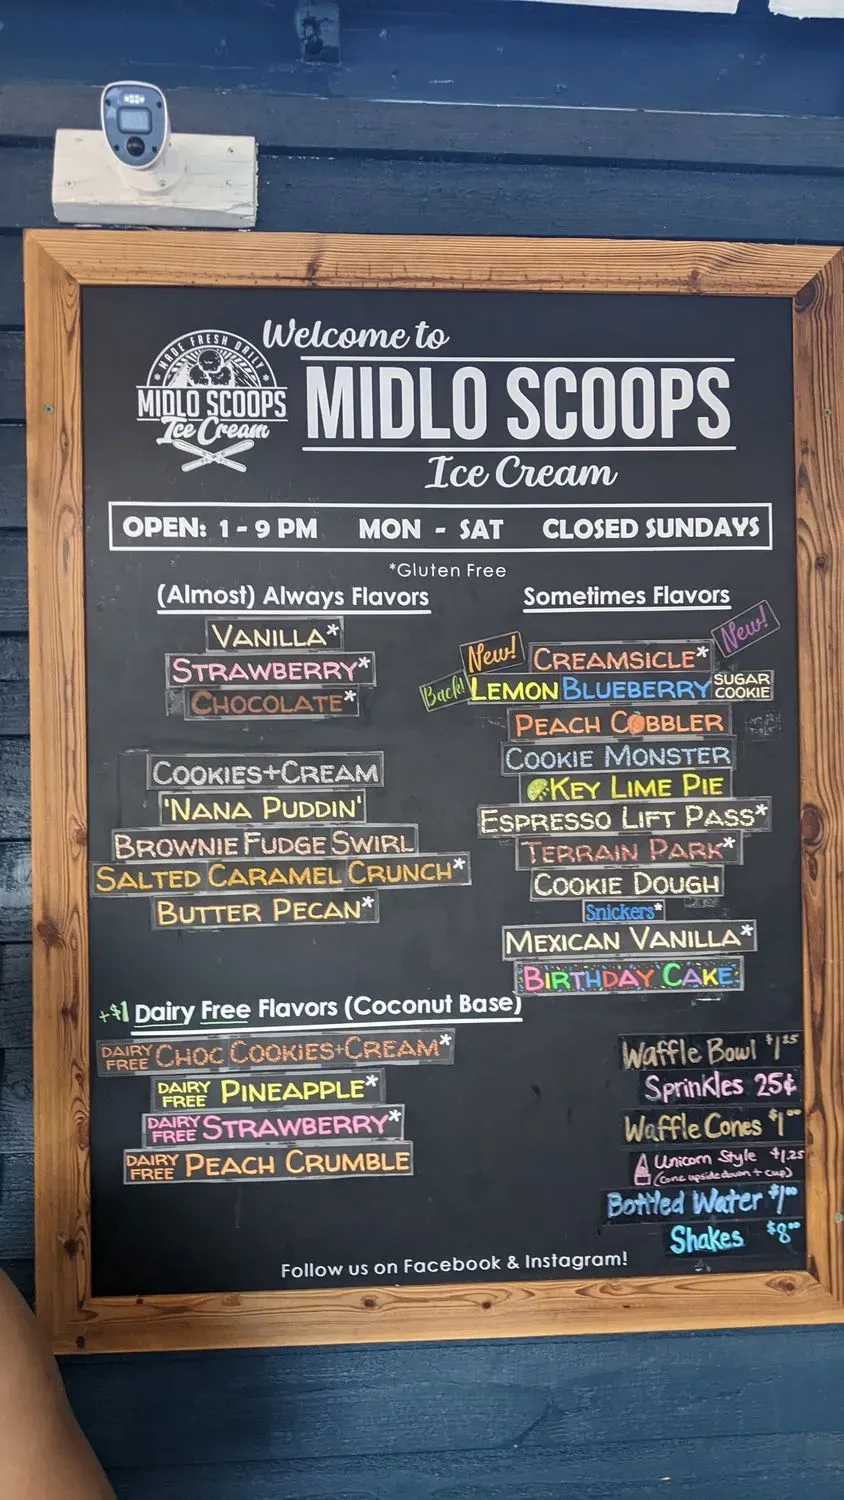 Welcome to
MADE FRESH DAILY
MIDLO SCOOPS
Ice Cream
MIDLO SCOOPS
Ice Cream
OPEN: 1 - 9 PM MON - SAT CLOSED SUNDAYS
*Gluten Free
(Almost) Always Flavors
VANILLA*
STRAWBERRY*
CHOCOLATE*
COOKIES+CREAM
'NANA PUDDIN'
BROWNIE FUDGE SWIRL
SALTED CARAMEL CRUNCH*
BUTTER PECAN*
Sometimes Flavors
New!
New! CREAMSICLE*
Back! LEMON BLUEBERRY SUGAR COOKIE
PEACH COBBLER
COOKIE MONSTER
KEY LIME PIE
ESPRESSO LIFT PASS*
TERRAIN PARK*
COOKIE DOUGH
Snickers*
MEXICAN VANILLA*
BIRTHDAY CAKE
+$1 Dairy Free Flavors (Coconut Base)
DAIRY FREE CHOC COOKIES+CREAM*
DAIRY FREE PINEAPPLE*
DAIRY FREE STRAWBERRY*
DAIRY FREE PEACH CRUMBLE
Waffle Bowl $1.25
Sprinkles 25¢
Waffle Cones $1.00
Unicorn Style $1.25
(cone upside down + cup)
Bottled Water $1.00
Shakes $8.00
Follow us on Facebook & Instagram!